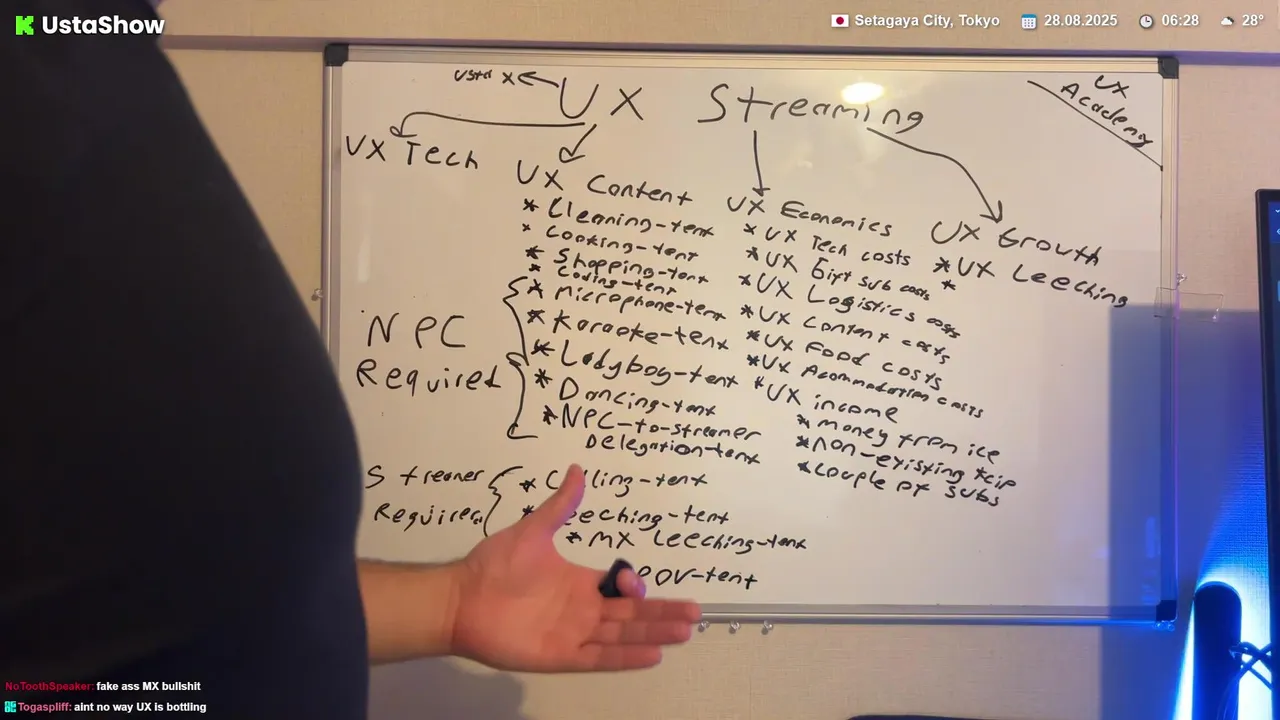 UstaShow
Setagaya City, Tokyo 28.08.2025 06:28 28°
Usta X
UX Streaming
UX Academy
UX Tech
UX Content
* Cleaning-tent
* Cooking-tent
* Shopping-tent
* Coding-tent
* Microphone-tent
* Karaoke-tent
* Ladyboy-tent
* Dancing-tent
* NPC-to-streamer
Delegation-tent
NPC
Required
Streamer
Required
* C lling-tent
* eeching-tent
* MX Leeching-tent
POV-tent
UX Economics
* UX Tech costs
* UX Gift sub costs
* UX Logistics costs
* UX Content costs
* UX Food costs
* UX Accommodation costs
* UX income
* money from ice
* non-existing kcip
* couple of subs
UX Growth
* UX Leeching
*
NoToothSpeaker: fake ass MX bullshit
Togaspliff: aint no way UX is bottling